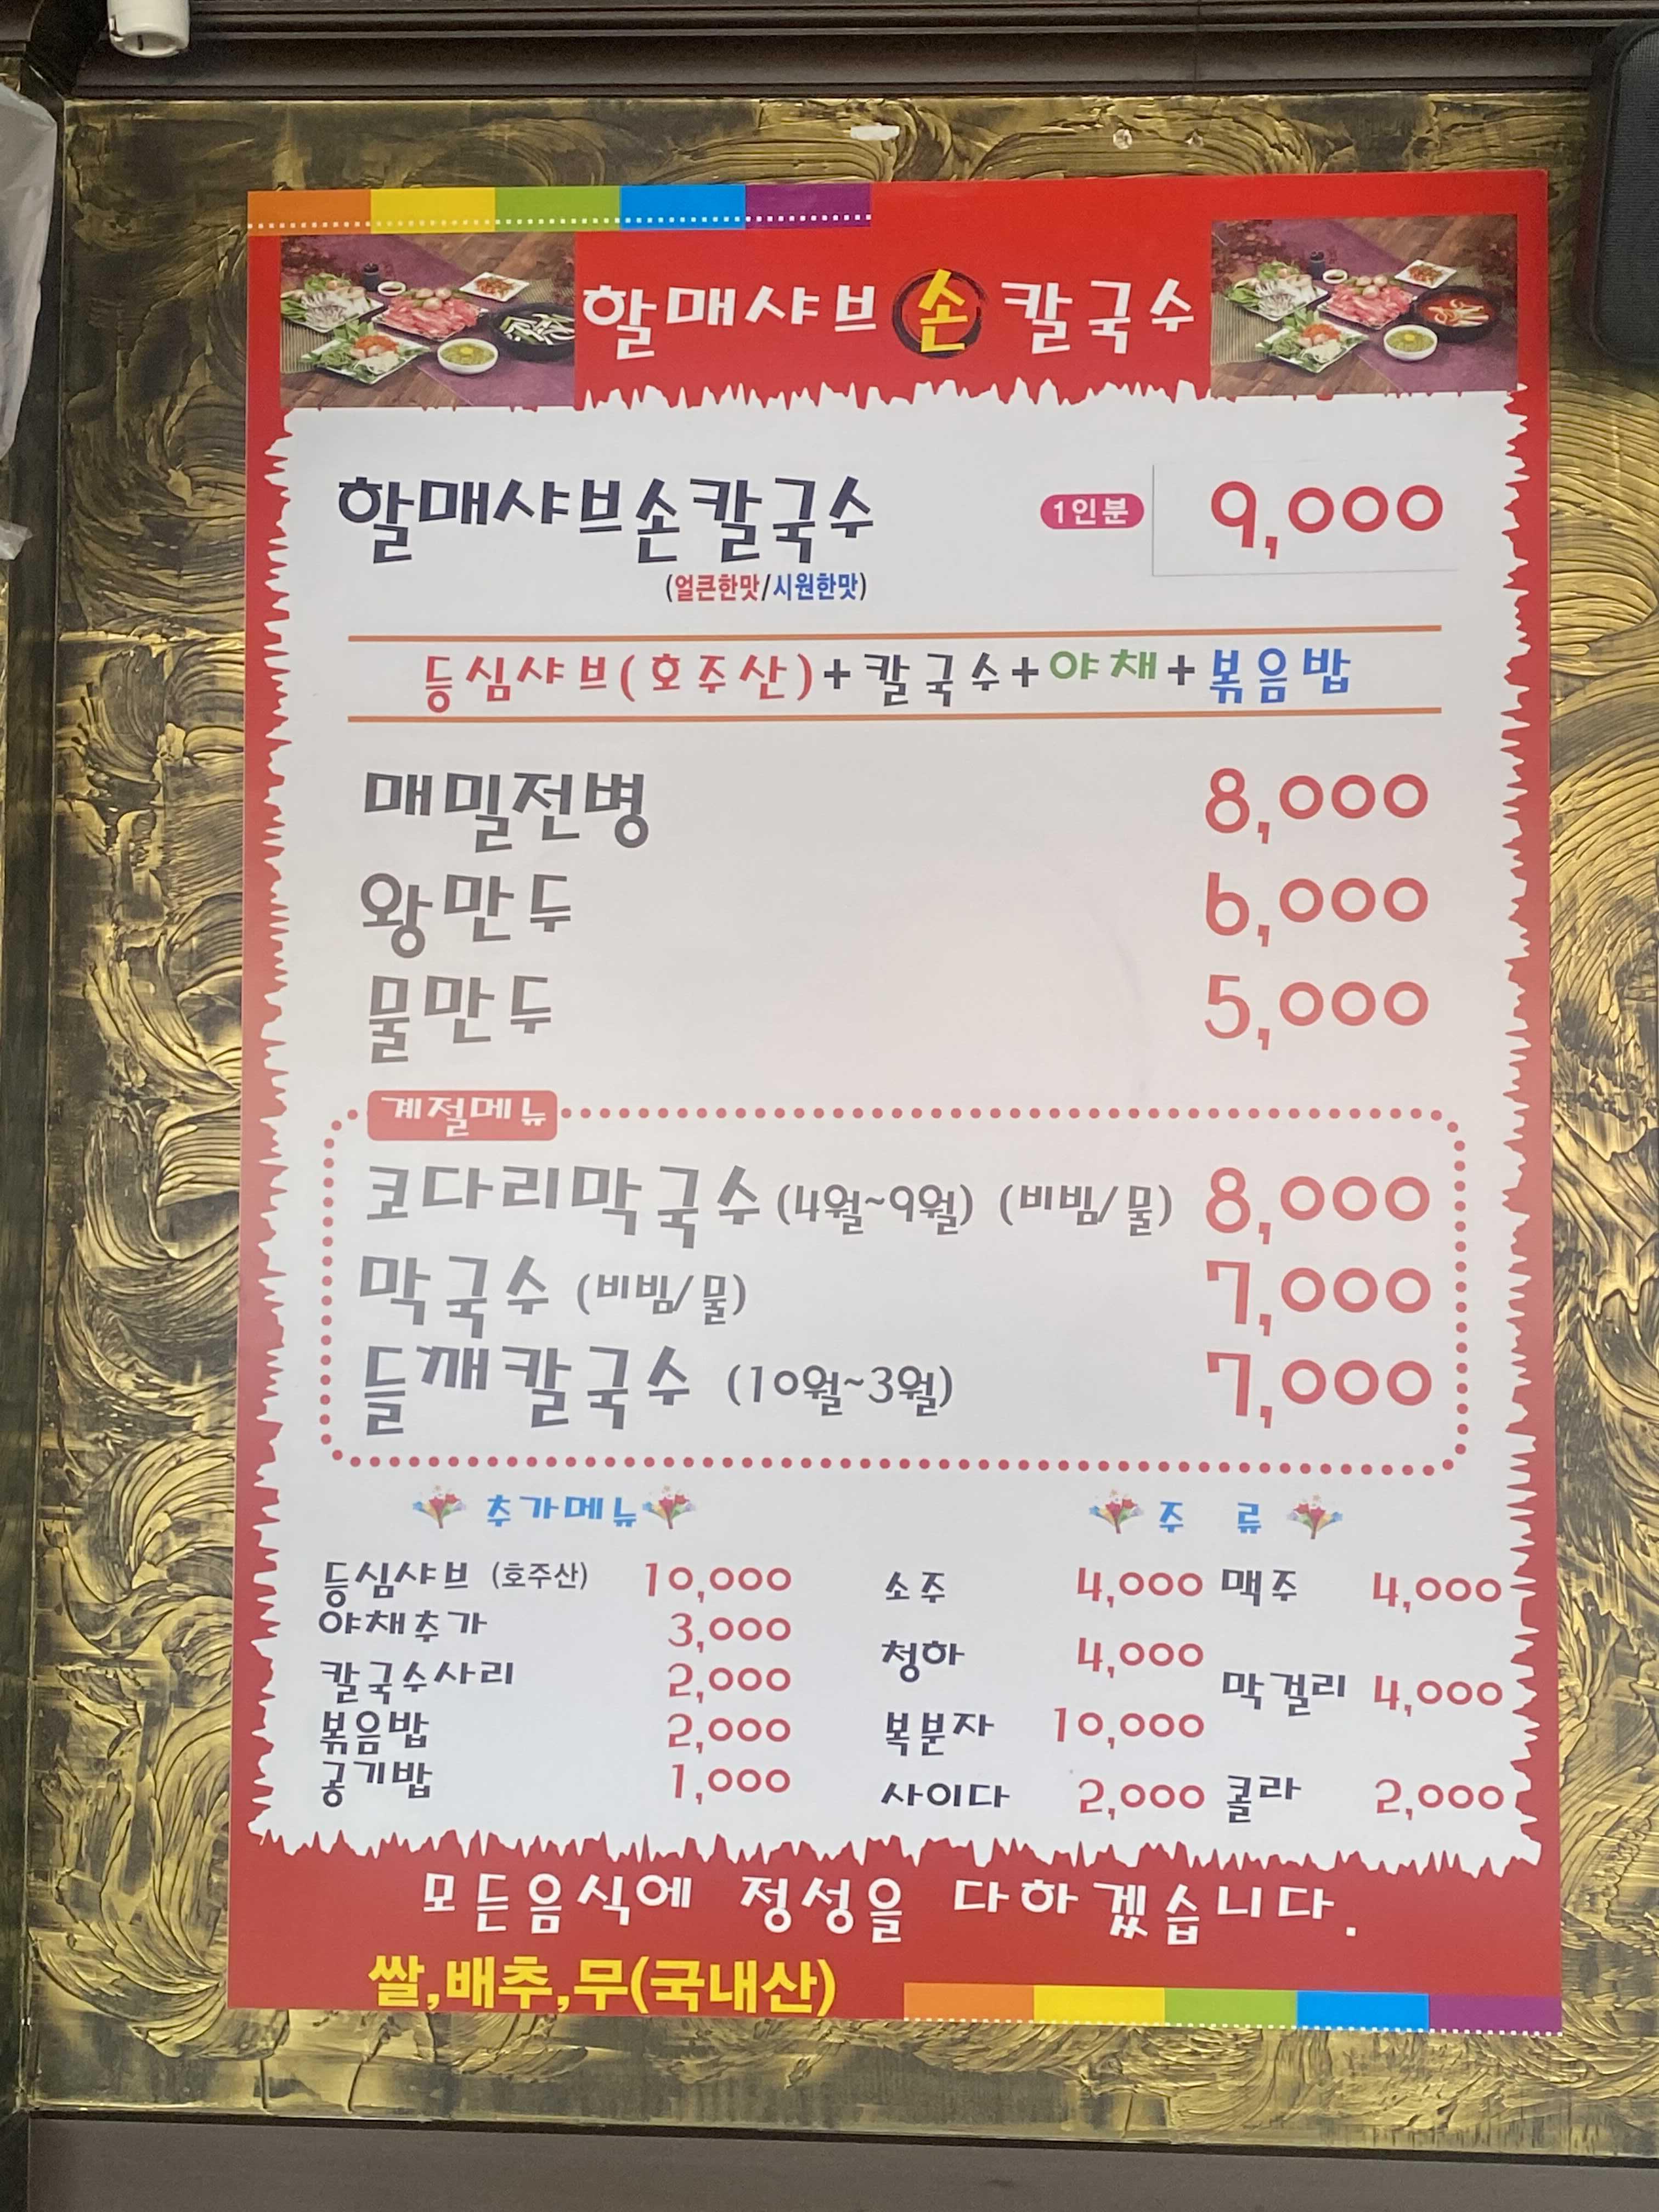 할매샤브손칼국수
할매샤브손칼국수 1인분 9,000
(얼큰한맛/시원한맛)
등심샤브(호주산)+칼국수+야채+볶음밥
매밀전병 8,000
왕만두 6,000
물만두 5,000
계절메뉴
코다리막국수 (4월~9월) (비빔/물) 8,000
막국수 (비빔/물) 7,000
들깨칼국수 (10월~3월) 7,000
추가메뉴
등심샤브 (호주산) 10,000
야채추가 3,000
칼국수사리 2,000
볶음밥 2,000
공기밥 1,000
주 류
소주 4,000 맥주 4,000
청하 4,000
막걸리 4,000
복분자 10,000
사이다 2,000 콜라 2,000
모든음식에 정성을 다하겠습니다.
쌀,배추,무(국내산)